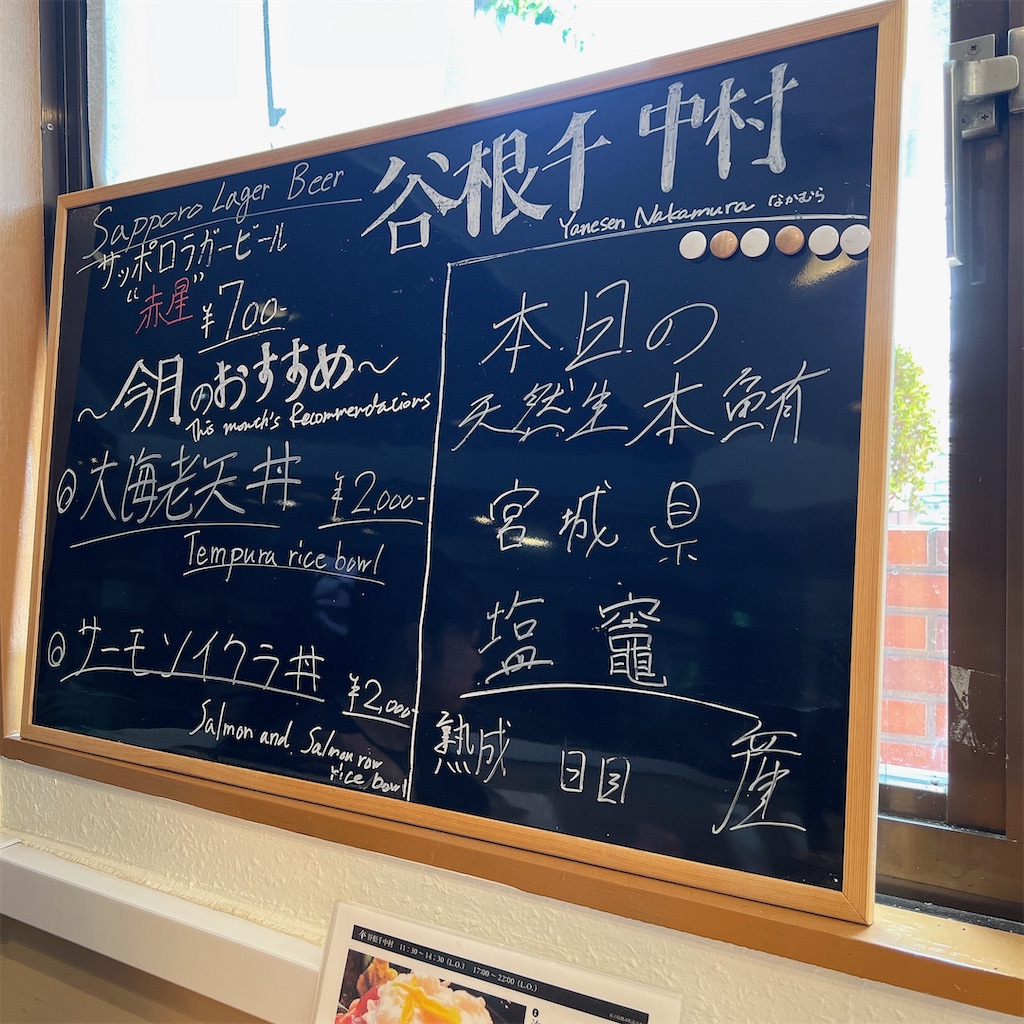 谷根千 中村
Yanesen Nakamura なかむら
Sapporo Lager Beer
サッポロラガービール
“赤星”
¥700-
～今月のおすすめ～
This month's Recommendations
◎大海老天丼 ¥2,000-
Tempura rice bowl
◎サーモンイクラ丼
¥2,000-
Salmon and Salmon row
rice bowl
本日の
天然生本鮪
宮城県
塩竈
産
熟成 日目
谷根千中村 11:30～14:30 (L.O.) 17:00～22:00 (L.O.)